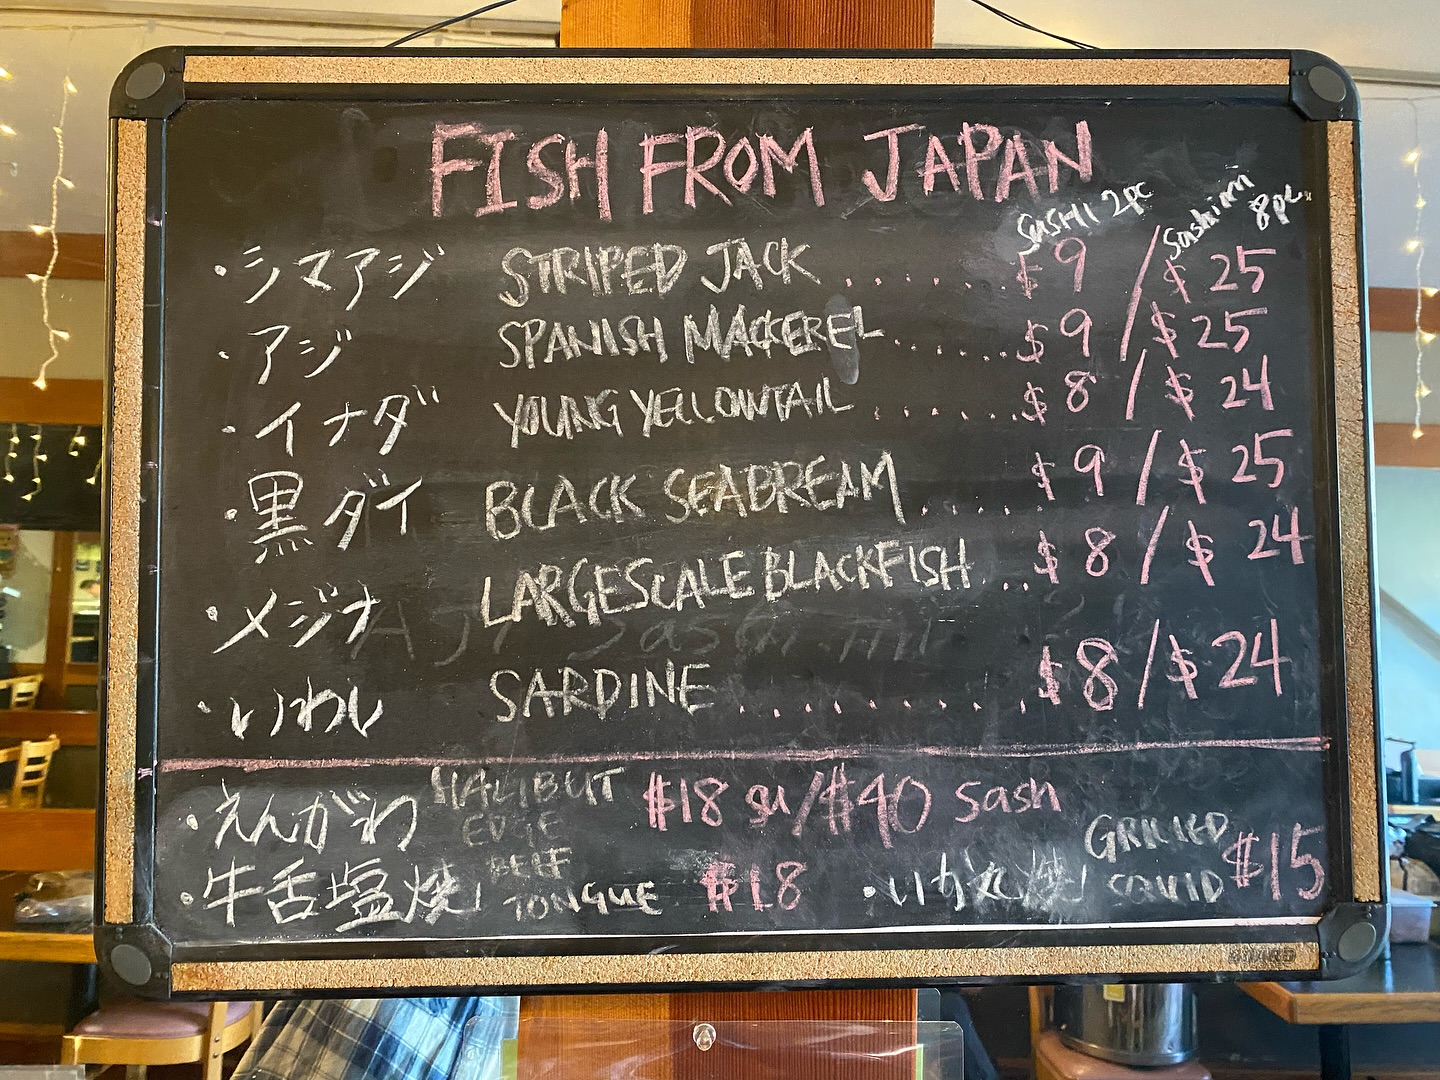 FISH FROM JAPAN
SUSHI 2pc Sashimi 8pc.
・シマアジ STRIPED JACK ...... $9 / $25
・アジ SPANISH MACKEREL ...... $9 / $25
・イナダ YOUNG YELLOWTAIL ...... $8 / $24
・黒ダイ BLACK SEABREAM ..... $9 / $25
・メジナ LARGESCALE BLACKFISH ... $8 / $24
Aji Sashimi
・いわし SARDINE ......... $8 / $24
・えんがわ HALIBUT EDGE $18 su/$40 sash
・牛舌塩焼 BEEF TONGUE $18 ・いか丸焼 GRILLED SQUID $15